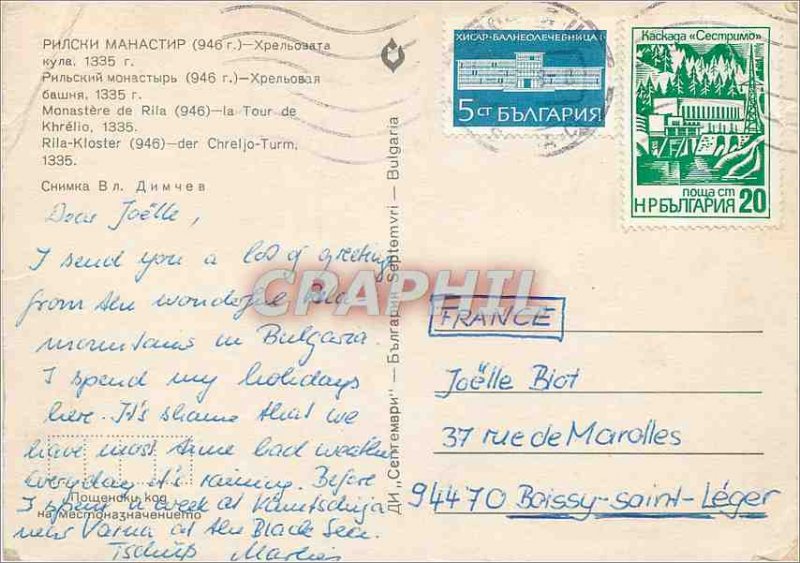 РИЛСКИ МАНАСТИР (946 г.)—Хрельовата
кула. 1335 г.
Рильский монастырь (946 г.)—Хрельовая
башня, 1335 г.
Monastère de Rila (946)—la Tour de
Khrélio, 1335.
Rila-Kloster (946)—der Chreljo-Turm,
1335.
Снимка Вл. Димчев
Dear Joëlle,
I send you a lot of greetings
from the wonderful Rila
mountains in Bulgaria.
I spend my holidays
here. It's shame that we
have most time bad weather
everyday it's raining. Before
I spent a week at Kamtschija
near Varna at the Black Sea.
Tschüß
Пощенски код
на местоназначението
ДИ „Септември" — Български Septemvri — Bulgaria
ХИСАР-БАЛНЕОЛЕЧЕБНИЦА
5 СТ БЪЛГАРИЯ
Каскада „Сестримо"
поща ст
НРБЪЛГАРИЯ 20
CRAPHIL
FRANCE
Joëlle Biot
37 rue de Marolles
94470 Boissy-saint-Léger